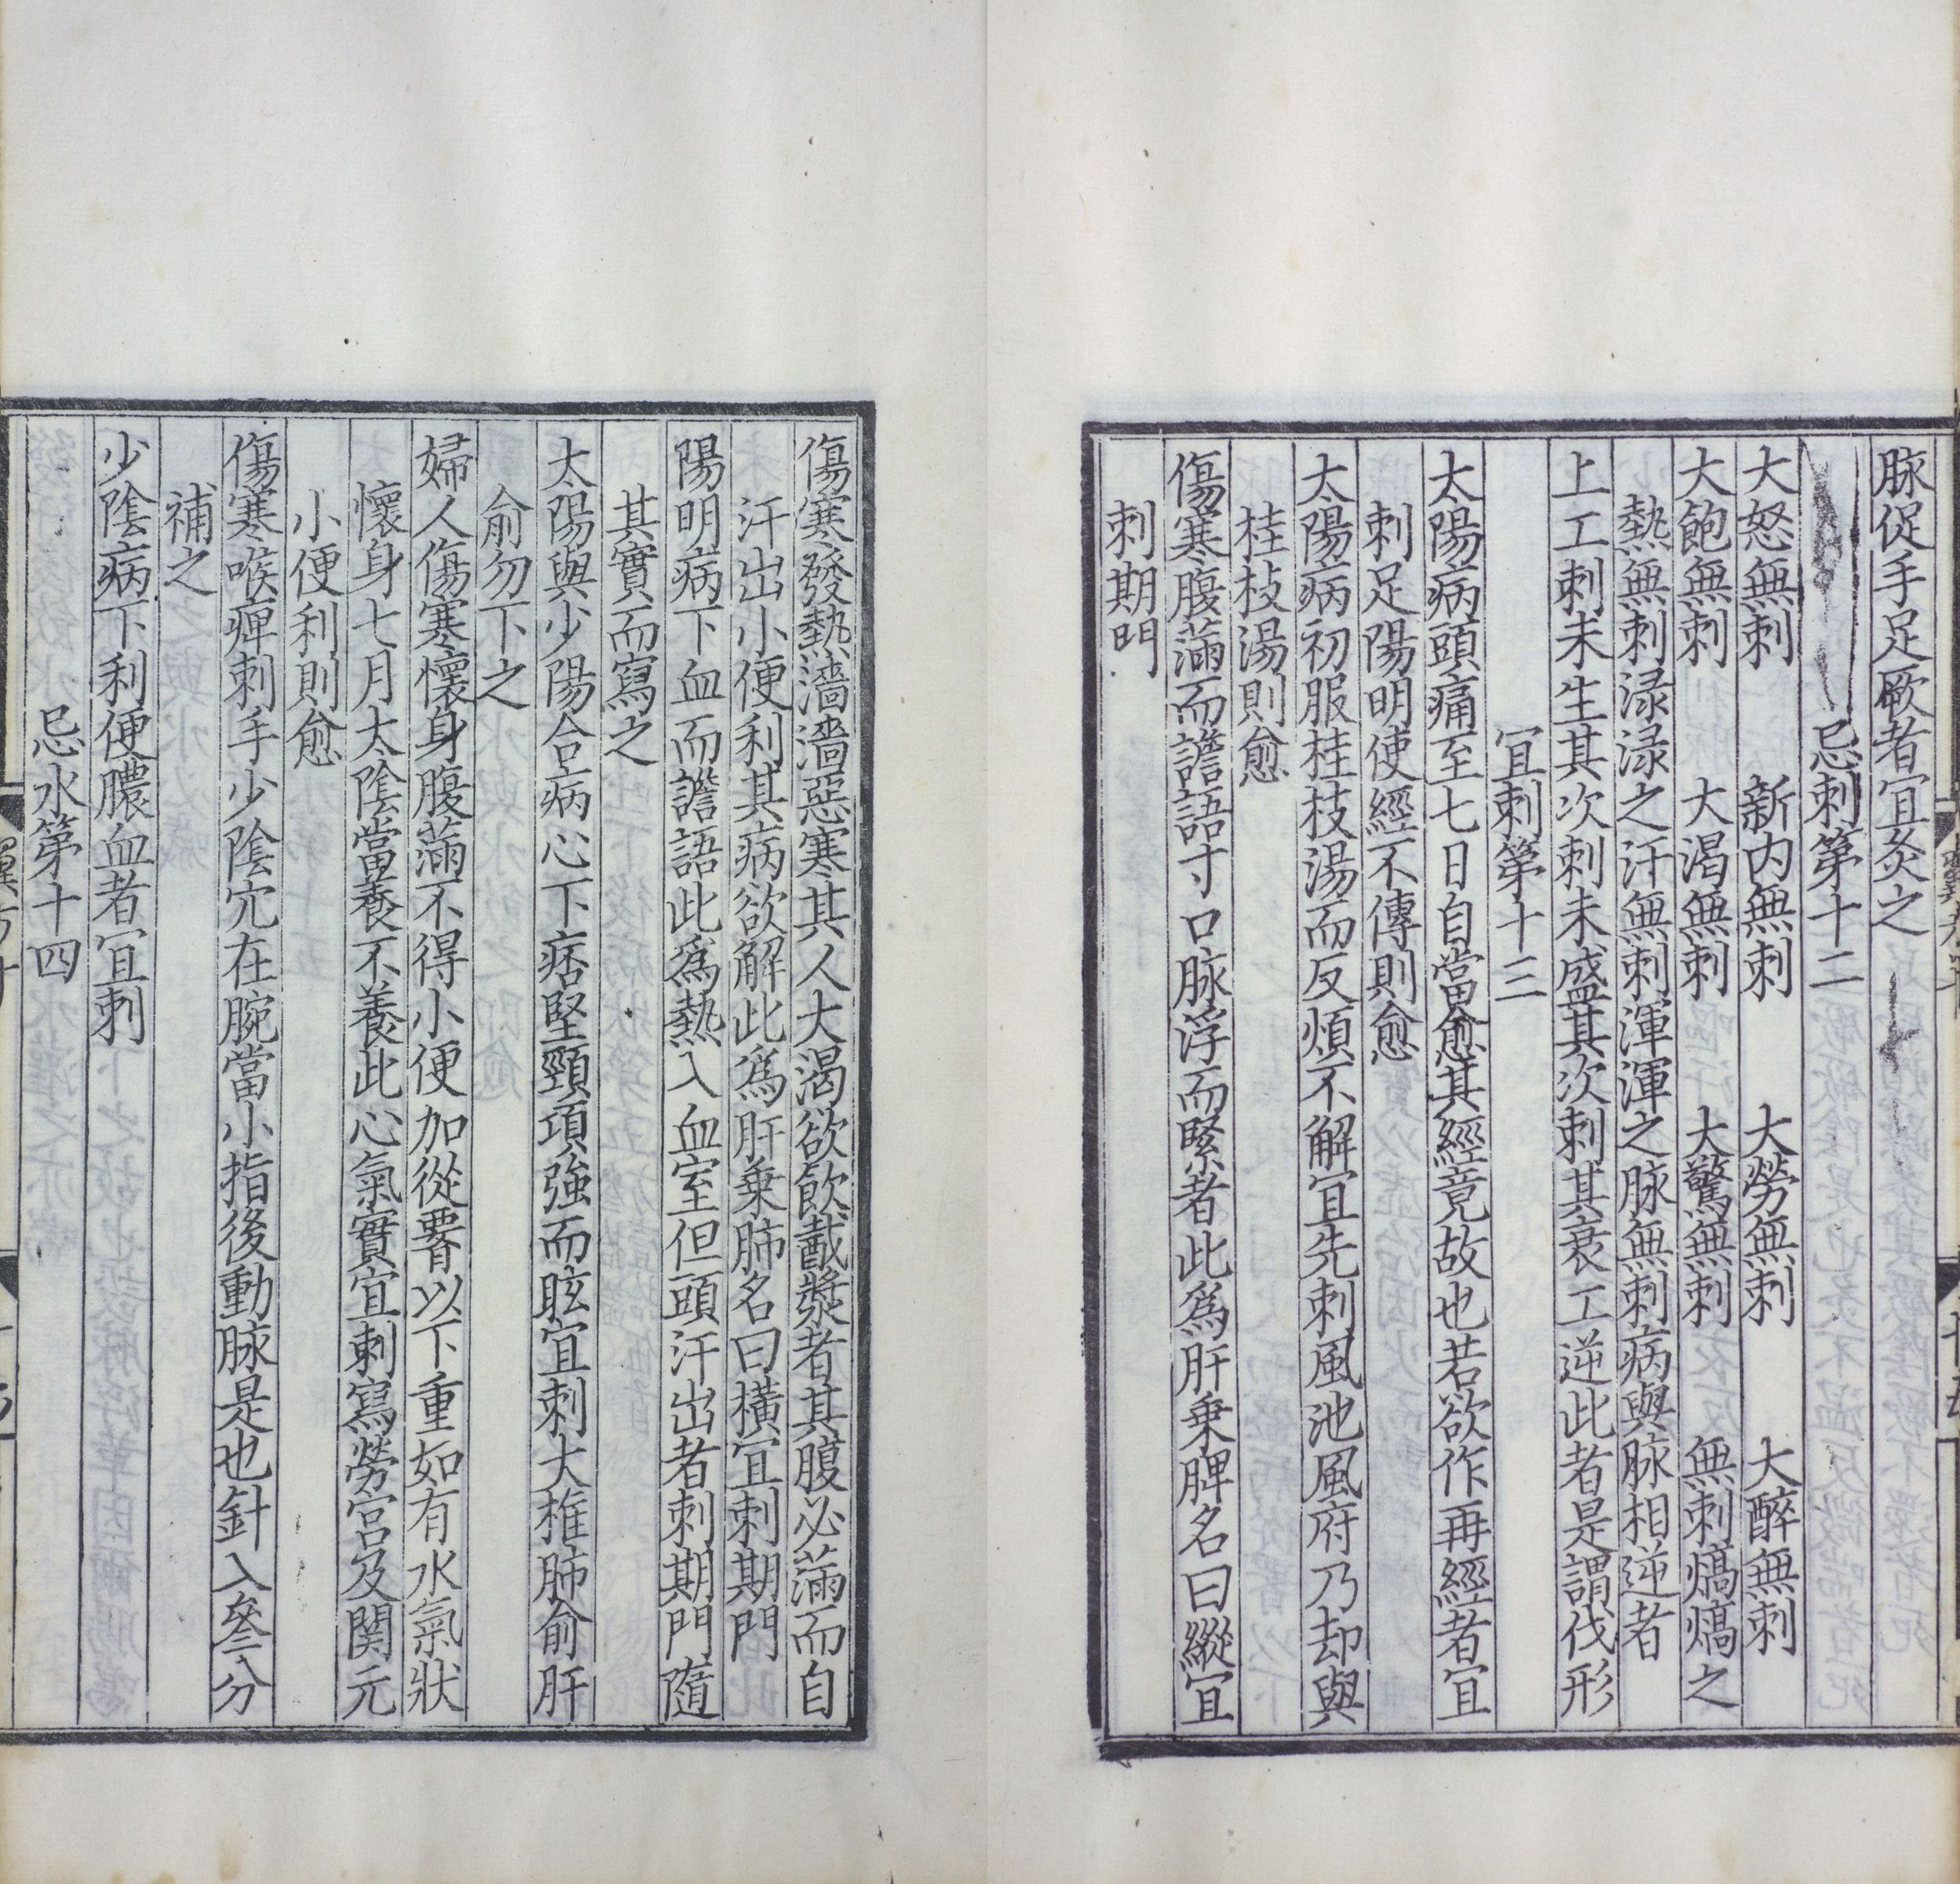 脉促手足厥者宜灸之
忌刺第十二
大怒無刺　新内無刺　大勞無刺　大醉無刺
大飽無刺　大渴無刺　大驚無刺　無刺熇熇之
熱無刺渌渌之汗無刺渾渾之脉無刺病與脉相逆者
上工刺未生其次刺未盛其次刺其衰工逆此者是謂伐形
宜刺第十三
太陽病頭痛至七日自當愈其經竟故也若欲作再經者宜
刺足陽明使經不傳則愈
太陽病初服桂枝湯而反煩不解宜先刺風池風府乃却與
桂枝湯則愈
傷寒腹滿而譫語寸口脉浮而緊者此爲肝乗脾名曰縱宜
刺期門
傷寒發熱濇濇惡寒其人大渴欲飲酨漿者其腹必滿而自
汗出小便利其病欲解此爲肝乗肺名曰橫宜刺期門
陽明病下血而譫語此爲熱入血室但頭汗出者刺期門隨
其實而寫之
太陽與少陽合病心下痞堅頸項強而眩宜刺大椎肺俞肝
俞勿下之
婦人傷寒懷身腹滿不得小便加從腰以下重如有水氣狀
懷身七月太陰當養不養此心氣實宜刺寫勞宫及関元
小便利則愈
傷寒喉痺刺手少陰穴在腕當小指後動脉是也針入叄分
補之
少陰病下利便膿血者宜刺
忌水第十四